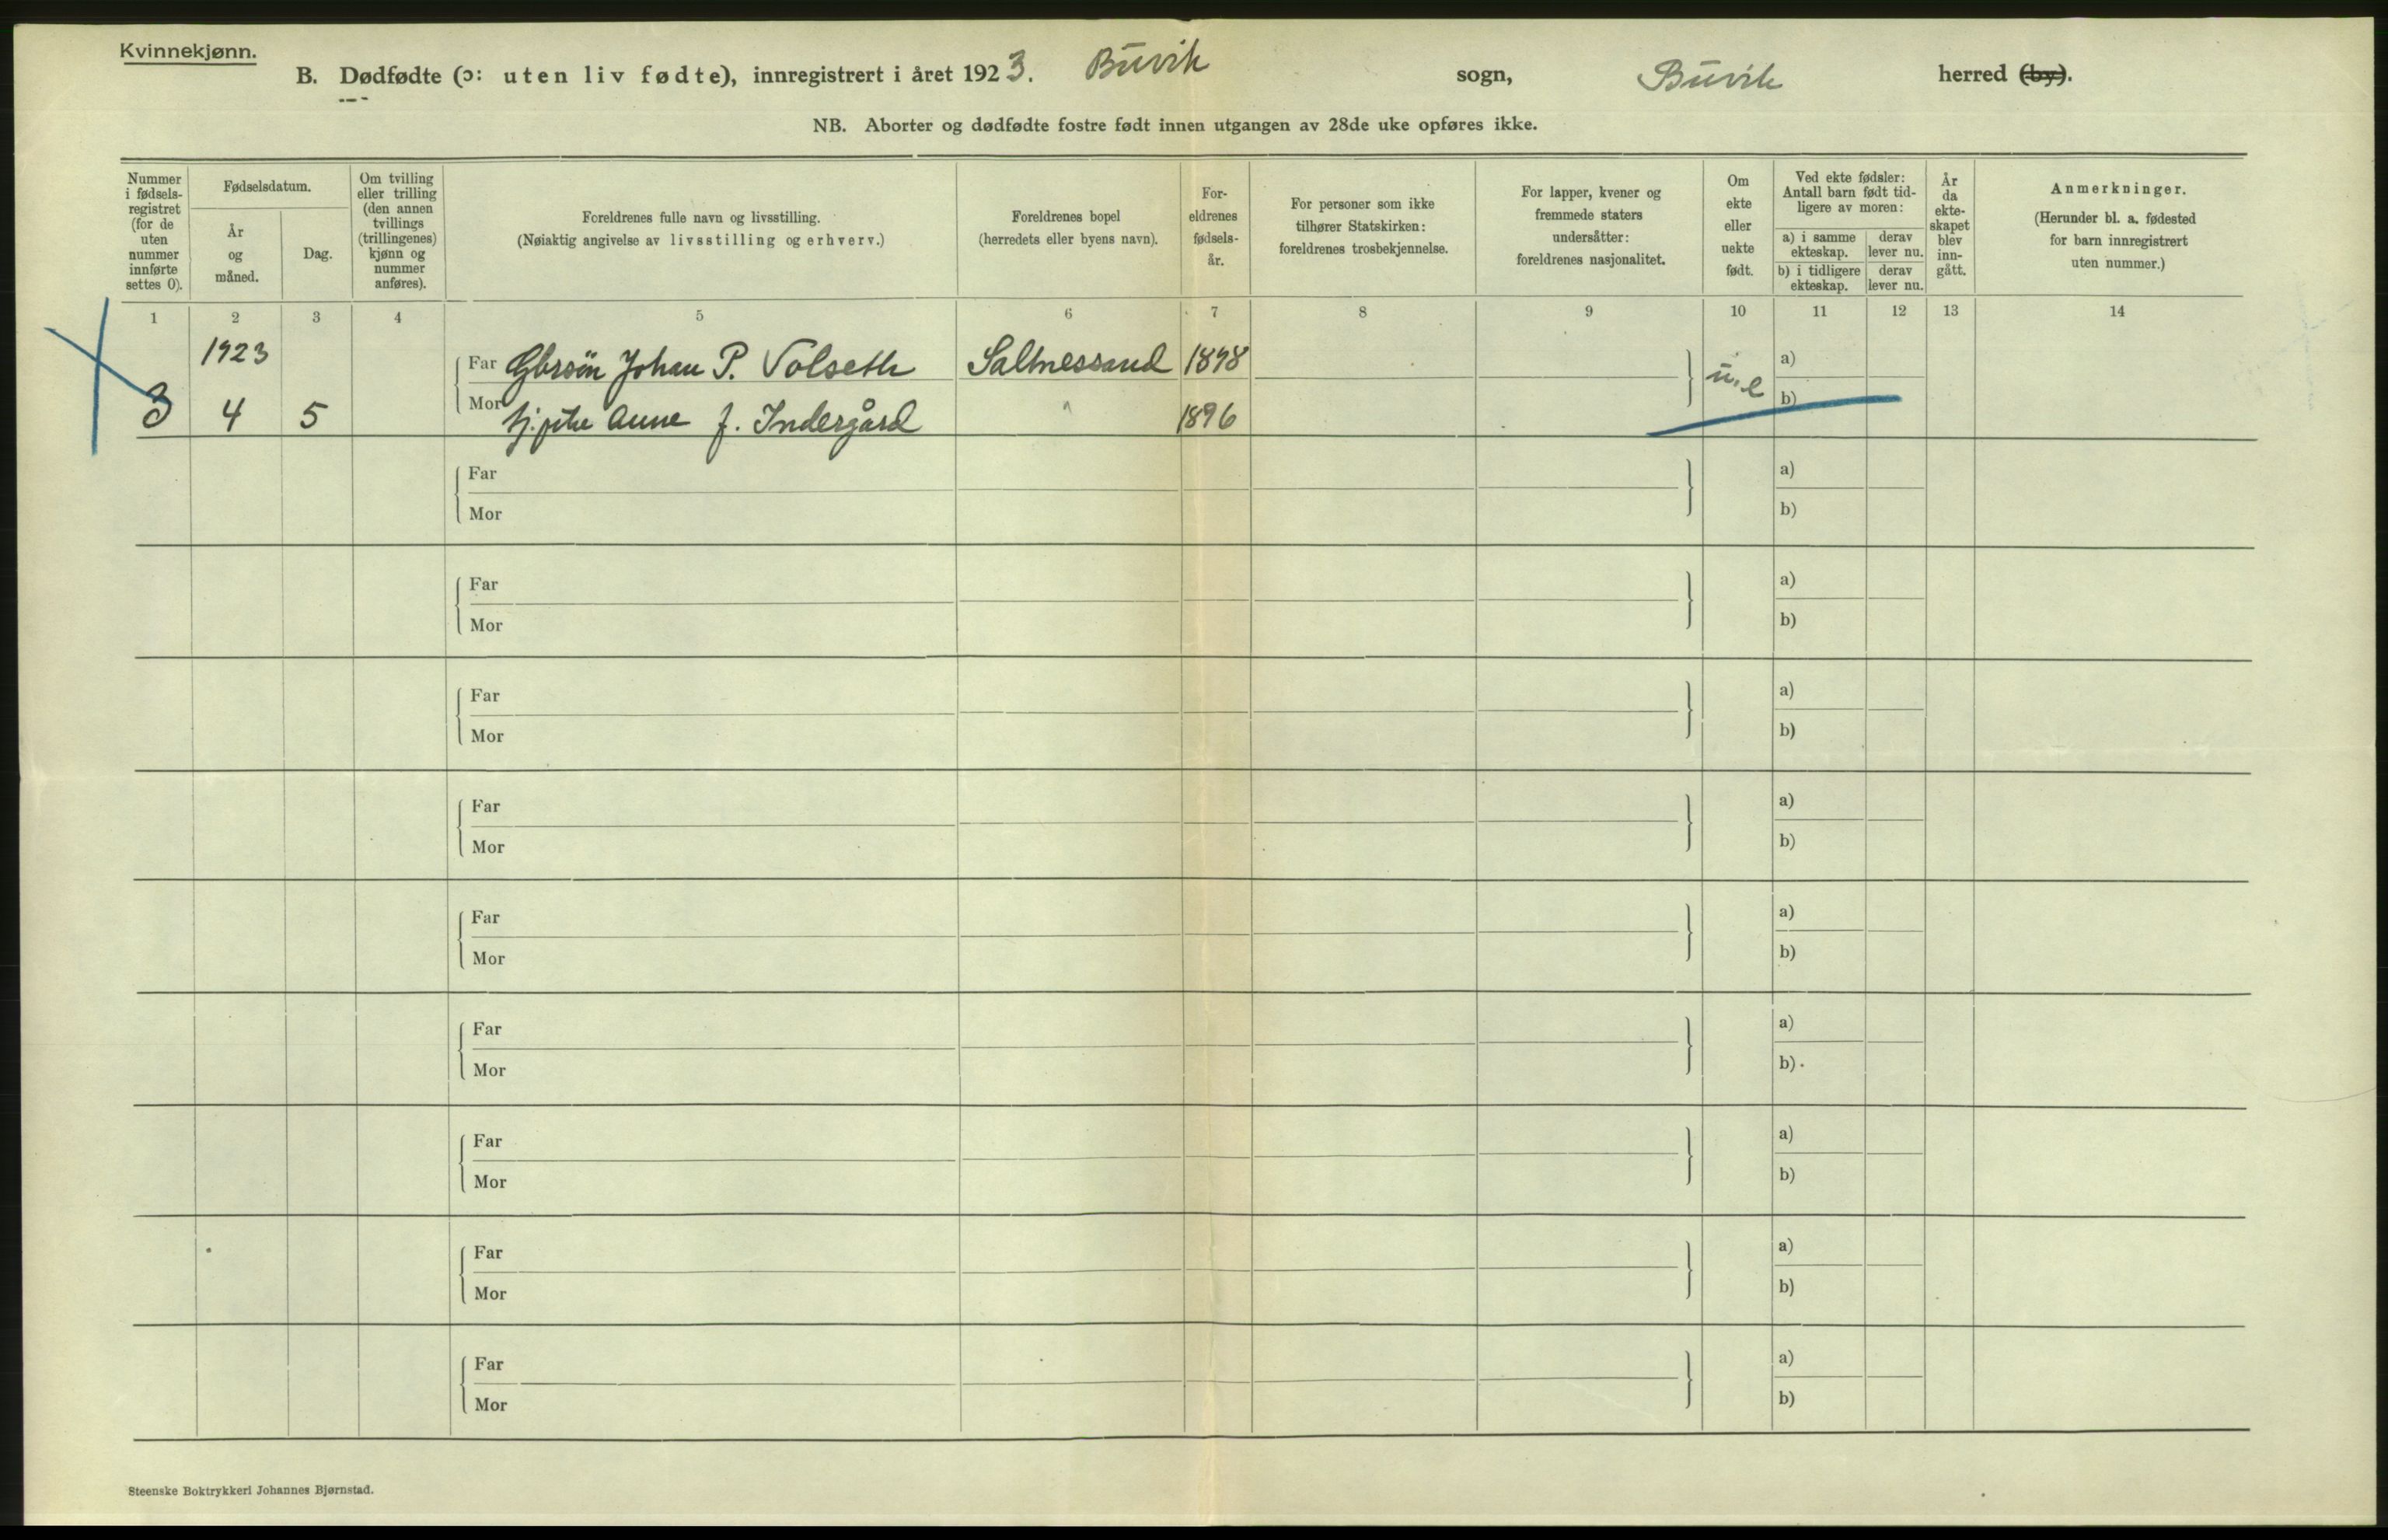 Kvinnekjønn.
B. Dødfødte (ɔ: uten liv fødte), innregistrert i året 1923. Buvik sogn, Buvik herred (by).
NB. Aborter og dødfødte fostre født innen utgangen av 28de uke opføres ikke.
Nummer
i fødsels-
registret
(for de
uten
nummer
innførte
settes 0).
Fødselsdatum.
År
og
måned.
Dag.
Om tvilling
eller trilling
(den annen
tvillings
(trillingenes)
kjønn og
nummer
anføres).
Foreldrenes fulle navn og livsstilling.
(Nøiaktig angivelse av livsstilling og erhverv.)
Foreldrenes bopel
(herredets eller byens navn).
For-
eldrenes
fødsels-
år.
For personer som ikke
tilhører Statskirken:
foreldrenes trosbekjennelse.
For lapper, kvener og
fremmede staters
undersåtter:
foreldrenes nasjonalitet.
Om
ekte
eller
uekte
født.
Ved ekte fødsler:
Antall barn født tid-
ligere av moren:
a) i samme
ekteskap.
derav
lever nu.
b) i tidligere
ekteskap.
derav
lever nu.
År
da
ekte-
skapet
blev
inn-
gått.
Anmerkninger.
(Herunder bl. a. fødested
for barn innregistrert
uten nummer.)
1 2 3 4 5 6 7 8 9 10 11 12 13 14
1923
Far Gbrsön Johan P. Volseth Saltnessand 1898 u.e a)
3 4 5 Mor Anne f. Indergård 1896 b)
Far a)
Mor b)
Far a)
Mor b)
Far a)
Mor b)
Far a)
Mor b)
Far a)
Mor b)
Far a)
Mor b)
Far a)
Mor b)
Far a)
Mor b)
Far a)
Mor b)
Steenske Boktrykkeri Johannes Bjørnstad.